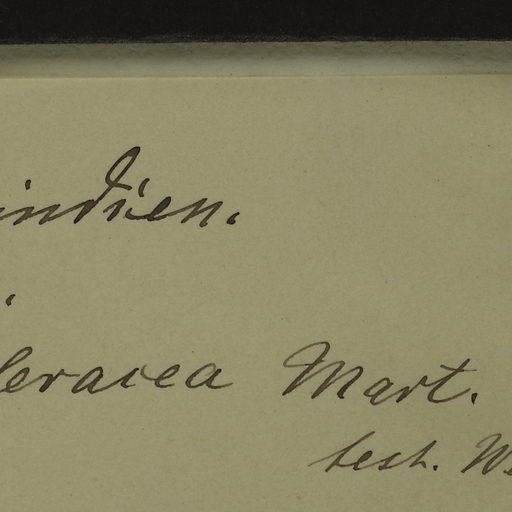 indien.
.
leracea Mart.
best. We